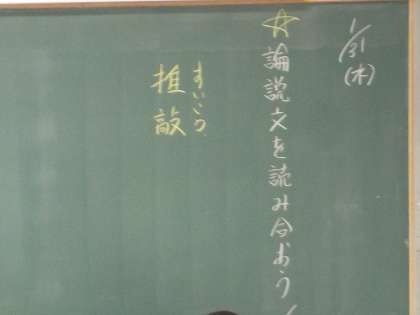 1/31(木)
☆論説文を読み合おう
すいこう
推敲